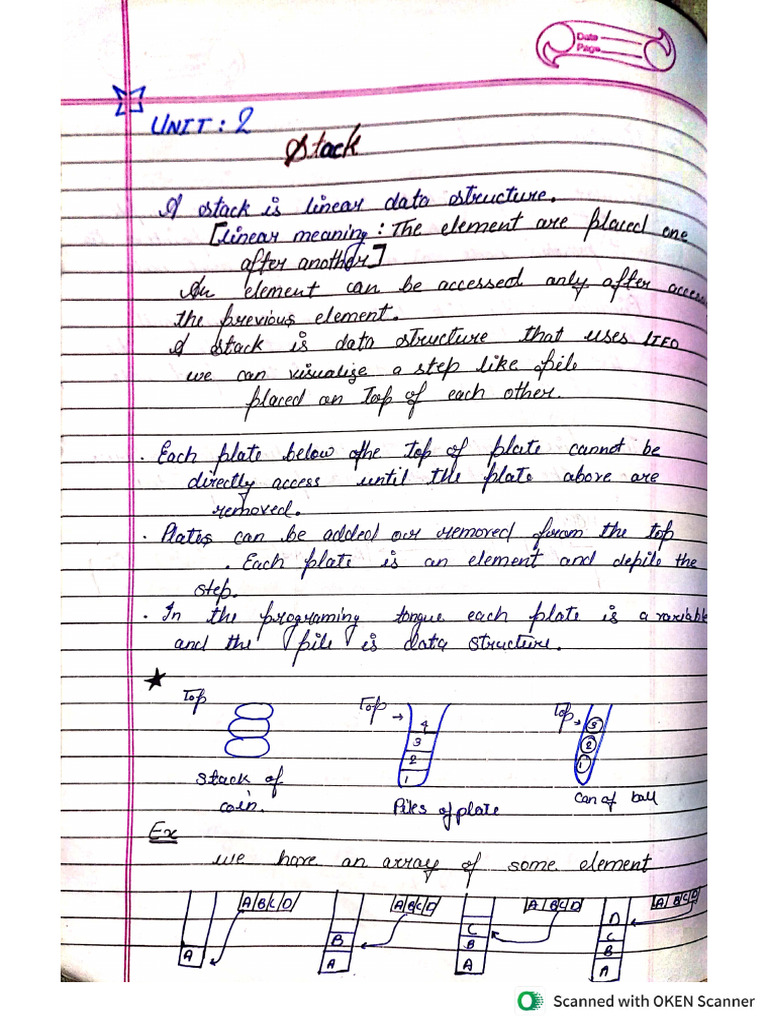 Date
Page
UNIT : 2
Stack
A stack is linear data structure.
[linear meaning : The element are placed one
after another]
An element can be accessed only after access
the previous element.
A stack is data structure that uses LIFO
we can visualize a step like pile
placed on top of each other.
. Each plate below the top of plate cannot be
directly access until the plate above are
removed.
. Plates can be added our removed from the top
. Each plate is an element and depile the
step.
. In the programing tongue each plate is a variable
and the pile is data structure.
Top Top Top
4 3
3 2
2 1
1
Stack of coin.
Piles of plate
Can of ball
Ex
we have an array of some element
A B C D A B C D A B C D A B C D
A
B
A
C
B
A
D
C
B
A
Scanned with OKEN Scanner